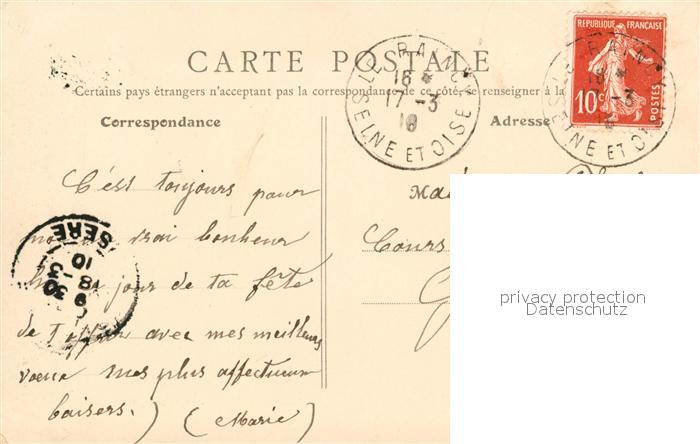 CARTE POSTALE
Certains pays étrangers n'acceptant pas la correspondance de ce côté, se renseigner à la
Correspondance
Adresse
RÉPUBLIQUE FRANÇAISE
10c POSTES
LE RAINCY
18 *
17 - 3
SEINE ET OISE
C'est toujours pour
un vrai bonheur
jour de ta fête
de t'offrir avec mes meilleurs
voeux mes plus affectueux
baisers. ) (Marie)
Cours
ISERE
10
30 - 3
18
privacy protection
Datenschutz